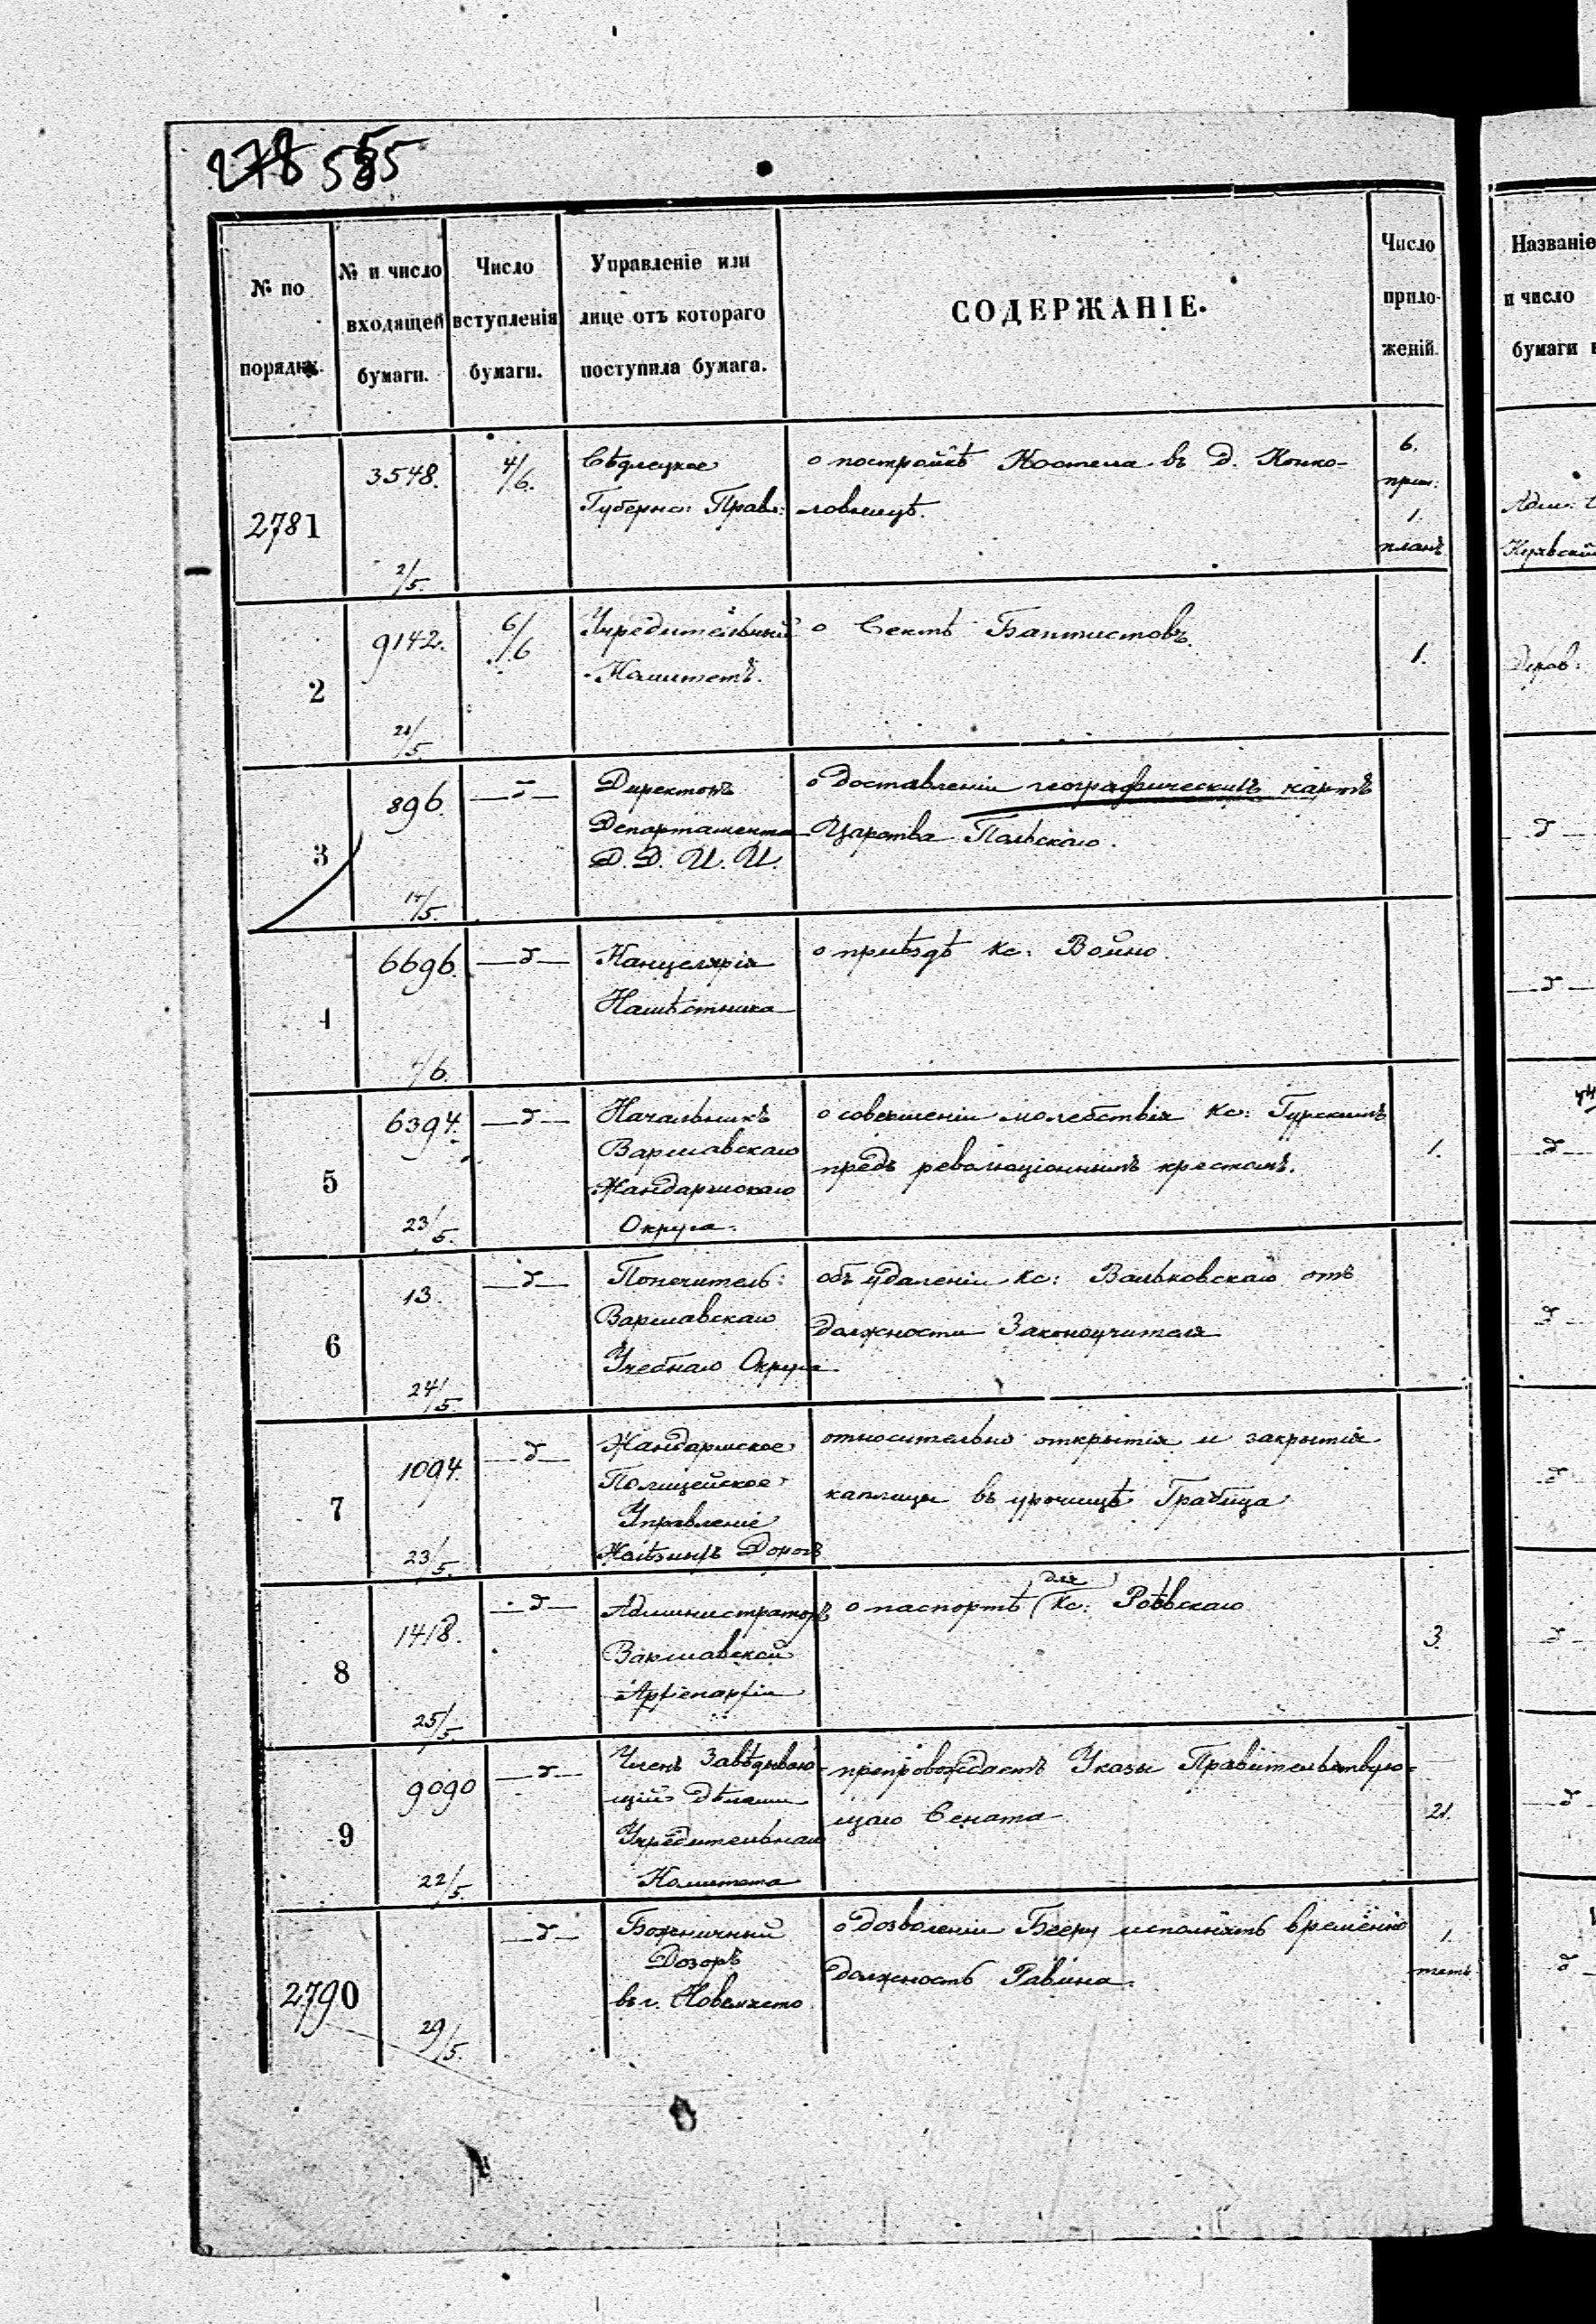 278 585
№ по порядку.
№ и число входящей бумаги.
Число вступленія бумаги.
Управленіе или лице отъ котораго поступила бумага.
СОДЕРЖАНІЕ.
Число прило-
женій.
Названіе
и число
бумаги
2781
3548.
2/5.
4/6.
Сѣдлецкое
Губернс: Правл:
о постройкѣ Костела въ д. Конко-
ловницѣ.
6.
прил.
1.
планъ
Адм:
2
9142.
21/5.
6/6
Учредительный
Комитетъ.
о Сектѣ Баптистовъ.
1.
3
896.
14/5.
—д—
Директоръ
Департамента
Д. Д. И. И.
о доставленіи географическихъ картъ
Царства Польскаго.
—д—
4
6696.
/6.
—д—
Канцелярія
Намѣстника
о приѣздѣ кс: Войно.
—д—
5
6394.
23/5.
—д—
Начальникъ
Варшавскаго
Жандармскаго
Округа.
о совершеніи молебствія кс: Гурскимъ
предъ революціоннымъ крестомъ.
1.
—д—
6
13.
24/5.
—д—
Попечитель:
Варшавскаго
Учебнаго Округа
объ удаленіи кс: Вальковскаго отъ
должности Законоучителя
—д—
7
1094.
23/5.
—д—
Жандармское
Полицейское
Управленіе
Желѣзныхъ Дорогъ
относительно открытія и закрытія
каплицы въ урочищѣ Грабица
—д—
8
1418.
25/5.
—д—
Администраторъ
Варшавской
Архіепархіи
о паспортѣ для кс: Роевскаго
3.
—д—
9
9090
22/5.
—д—
Членъ Завѣдываю-
щій дѣлами
Учредительнаго
Комитета
препровождаетъ Указы Правительствую-
щаго Сената
21.
—д—
2790
29/5.
—д—
Божничный
Дозоръ
въ г. Новемясто
о дозволеніи Бееру исполнять временно
должность Равина.
1.
тет.
—д—